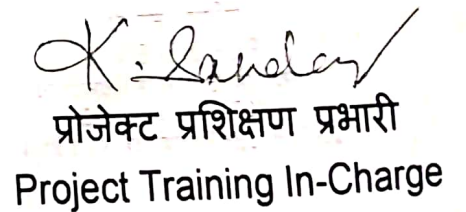 प्रोजेक्ट प्रशिक्षण प्रभारी
Project Training In-Charge